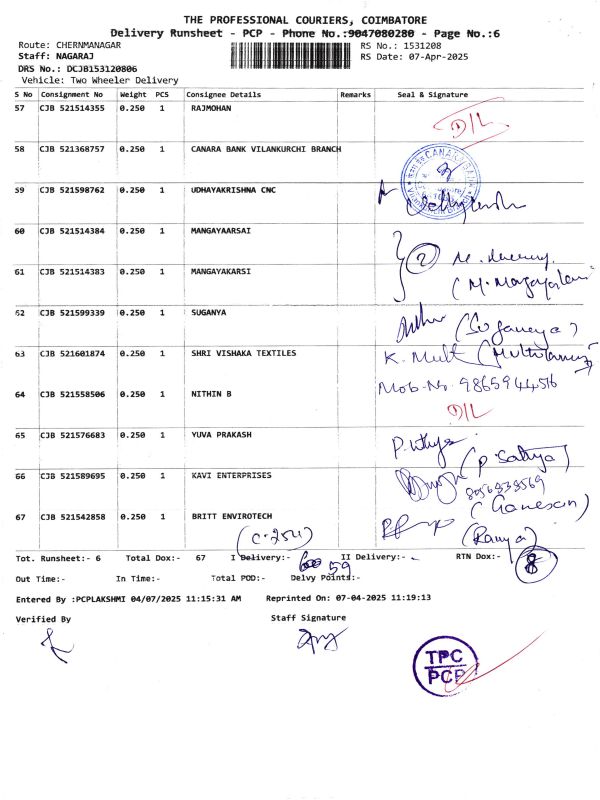 THE PROFESSIONAL COURIERS, COIMBATORE
Delivery Runsheet - PCP - Phone No.:9047080280 - Page No.:6
Route: CHERNMANAGAR RS No.: 1531208
Staff: NAGARAJ RS Date: 07-Apr-2025
DRS No.: DCJB153120806
Vehicle: Two Wheeler Delivery
S No Consignment No Weight PCS Consignee Details Remarks Seal & Signature
57 CJB 521514355 0.250 1 RAJMOHAN
D/L
58 CJB 521368757 0.250 1 CANARA BANK VILANKURCHI BRANCH
CANARA BANK
59 CJB 521598762 0.250 1 UDHAYAKRISHNA CNC
60 CJB 521514384 0.250 1 MANGAYAARSAI
2
61 CJB 521514383 0.250 1 MANGAYAKARSI
62 CJB 521599339 0.250 1 SUGANYA
(Suganeya)
63 CJB 521601874 0.250 1 SHRI VISHAKA TEXTILES
64 CJB 521558506 0.250 1 NITHIN B
Mob-No. 9865944516
D/L
65 CJB 521576683 0.250 1 YUVA PRAKASH
(P. Sathya)
66 CJB 521589695 0.250 1 KAVI ENTERPRISES
8056939569
(Ganesan)
67 CJB 521542858 0.250 1 BRITT ENVIROTECH
(C.254)
(Ramya)
Tot. Runsheet:- 6 Total Dox:- 67 I Delivery:- 59 II Delivery:- RTN Dox:- 8
Out Time:- In Time:- Total POD:- Delvy Points:-
Entered By :PCPLAKSHMI 04/07/2025 11:15:31 AM Reprinted On: 07-04-2025 11:19:13
Verified By Staff Signature
TPC
PCP